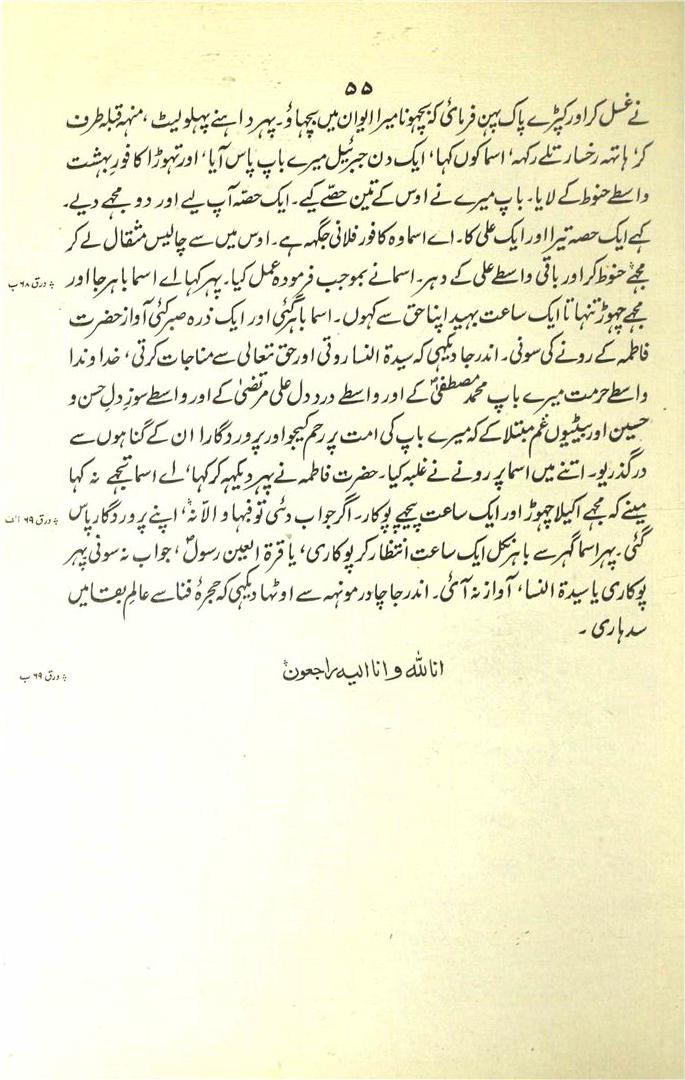 ۵۵
نے غسل کر اور کپڑے پاک پہن فرمائی کہ بچھونا میرا ایوان میں بچھاؤ۔ پہر داہنے پہلو لیٹ، منہہ قبلہ طرف
کر، ہاتھہ رخسار تلے رکھہ، اسما کوں کہا، ایک دن جبرئیل میرے باپ پاس آیا، اور تہوڑا کافور بہشت
واسطے حنوط کے لایا۔ باپ میرے نے اوس کے تین حصّے کیے۔ ایک حصّہ آپ لیے اور دو مجہے دیے۔
کہے ایک حصہ تیرا اور ایک علی کا۔ اے اسما وہ کافور فلانی جگہہ ہے۔ اوس میں سے چالیس مثقال لے کر
مجہے حنوط کر اور باقی واسطے علی کے دہر۔ اسما نے بموجب فرمودہ عمل کیا۔ پہر کہا اے اسما باہر جا اور
ورق ۶۸ ب
مجہے چہوڑ تنہا تا ایک ساعت بہید اپنا حق سے کہوں۔ اسما باہر گئی اور ایک ذرہ صبر کئی آواز حضرت
فاطمہ کے رونے کی سونی۔ اندر جا دیکہی کہ سیدۃ النسا روتی اور حق تعالی سے مناجات کرتی، خداوندا
واسطے حرمت میرے باپ محمد مصطفیؐ کے اور واسطے درد دل علی مرتضیٰ کے اور واسطے سوز دلِ حسن و
حسین اور بیٹیوں غم مبتلا کے کہ میرے باپ کی امت پر رحم کیجو اور پروردگارا ان کے گناہوں سے
درگذریو۔ اتنے میں اسما پر رونے نے غلبہ کیا۔ حضرت فاطمہ نے پہر دیکہہ کر کہا، اے اسما تجہے نہ کہا
مینے کہ مجہے اکیلا چہوڑ اور ایک ساعت پیچہے پوکار۔ اگر جواب دئی تو فبہا و الّا نہ، اپنے پروردگار پاس
ورق ۶۹ الف
گئی۔ پہر اسما گہر سے باہر نکل ایک ساعت انتظار کر پوکاری، یا قرۃ العین رسولؐ، جواب نہ سونی پہر
پوکاری یا سیدۃ النسا، آواز نہ آئی۔ اندر جا چادر مونہہ سے اوٹہا دیکہی کہ حجرۂ فنا سے عالمِ بقا میں
سدہاری۔
انا للہ و انا الیہ راجعون
ورق ۶۹ ب